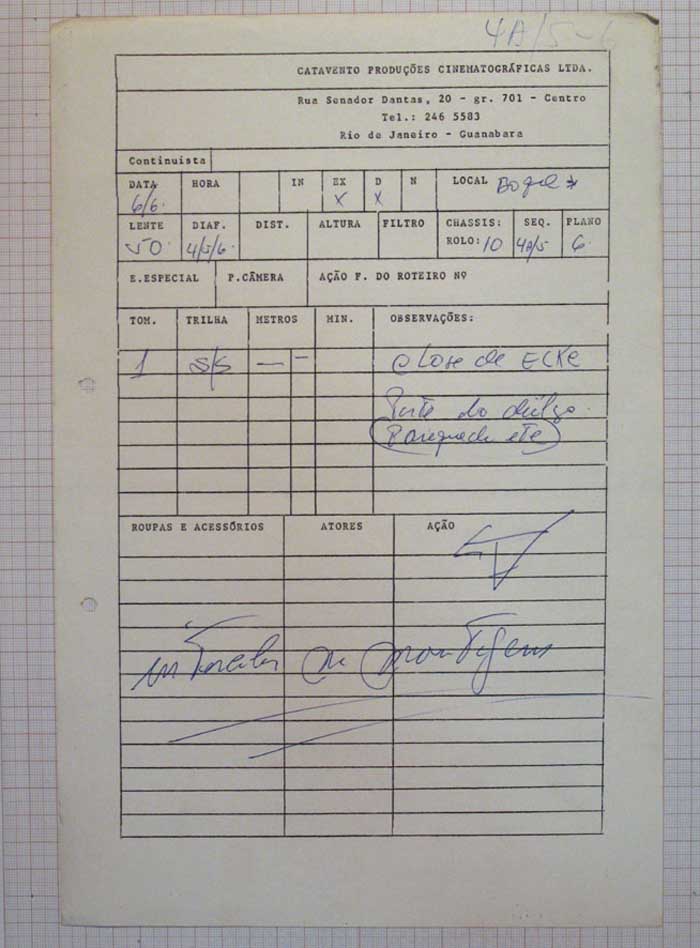 4A/5-6
CATAVENTO PRODUÇÕES CINEMATOGRÁFICAS LTDA.
Rua Senador Dantas, 20 - gr. 701 - Centro
Tel.: 246 5583
Rio de Janeiro - Guanabara
Continuista
DATA HORA IN EX D N LOCAL
6/6. X X
LENTE DIAF. DIST. ALTURA FILTRO CHASSIS: SEQ. PLANO
50. 4/5/6. ROLO: 10 4A/5 6
E.ESPECIAL P.CÂMERA AÇÃO P. DO ROTEIRO Nº
TOM. TRILHA METROS MIN. OBSERVAÇÕES:
1 S/S — — Close de ECKE
Parte do
ROUPAS E ACESSÓRIOS ATORES AÇÃO